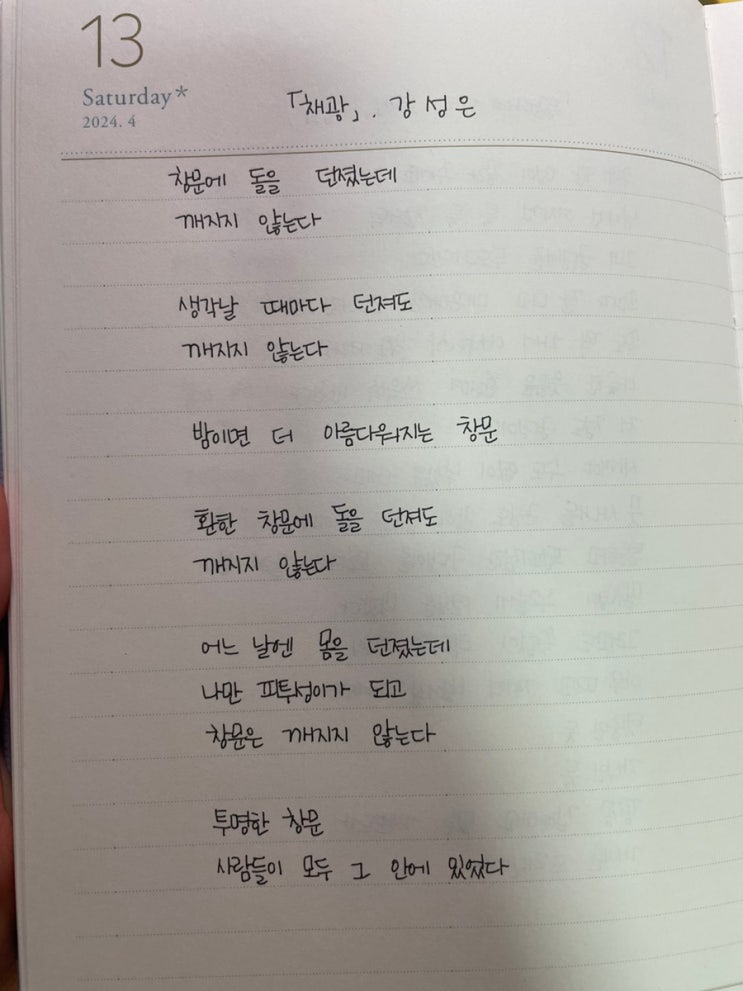 13
Saturday*
2024. 4
「채광」. 강성은
창문에 돌을 던졌는데
깨지지 않는다
생각날 때마다 던져도
깨지지 않는다
밤이면 더 아름다워지는 창문
환한 창문에 돌을 던져도
깨지지 않는다
어느 날엔 몸을 던졌는데
나만 피투성이가 되고
창문은 깨지지 않는다
투명한 창문
사람들이 모두 그 안에 있었다